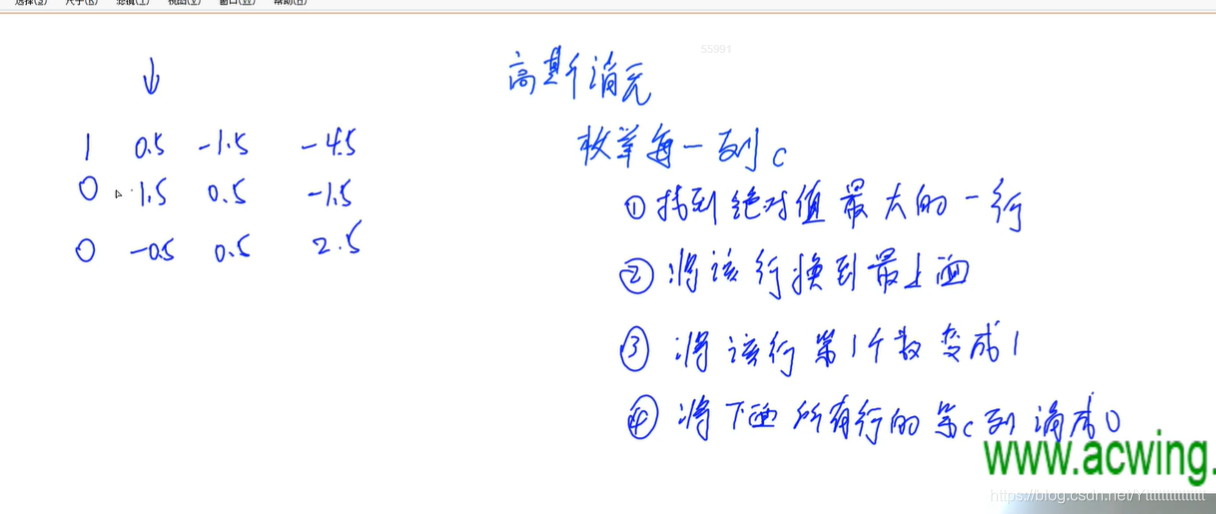 选择(S) 尺寸(B) 滤镜(I) 视图(V) 窗口(W) 帮助(H)
55991
高斯消元
枚举每一列c
① 找到绝对值最大的一行
② 将该行换到最上面
③ 将该行第1个数变成1
④ 将下面所有行的第c列消成0
1 0.5 -1.5 -4.5
0 1.5 0.5 -1.5
0 -0.5 0.5 2.5
www.acwing.